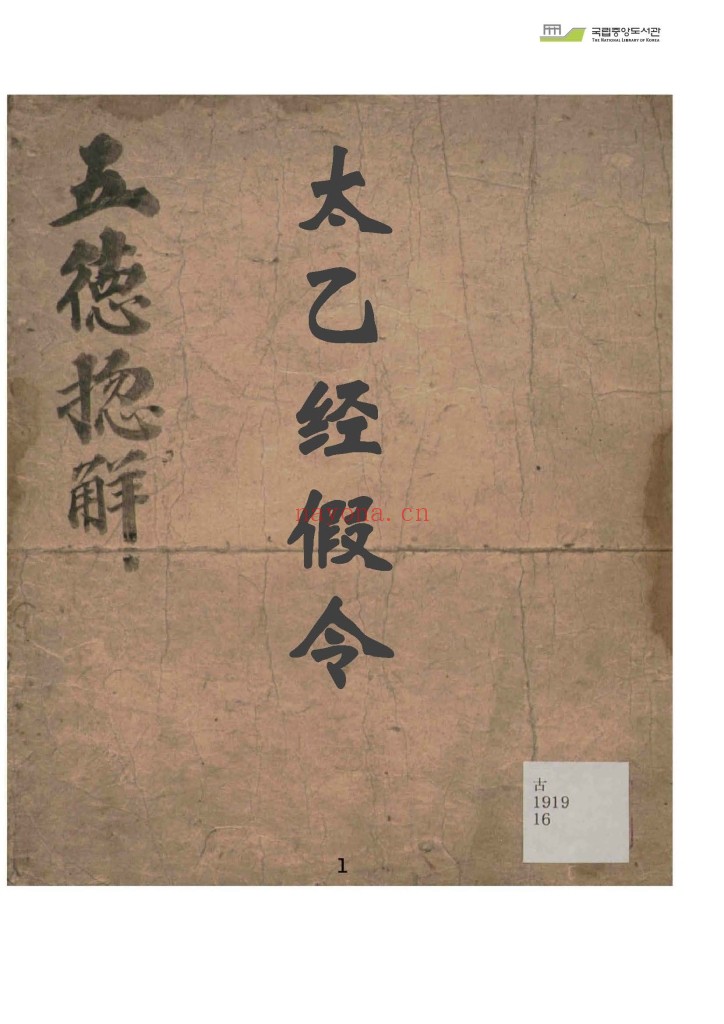 국립중앙도서관
THE NATIONAL LIBRARY OF KOREA
太乙经假令
五德揔解
nayona.cn
古
1919
16
1